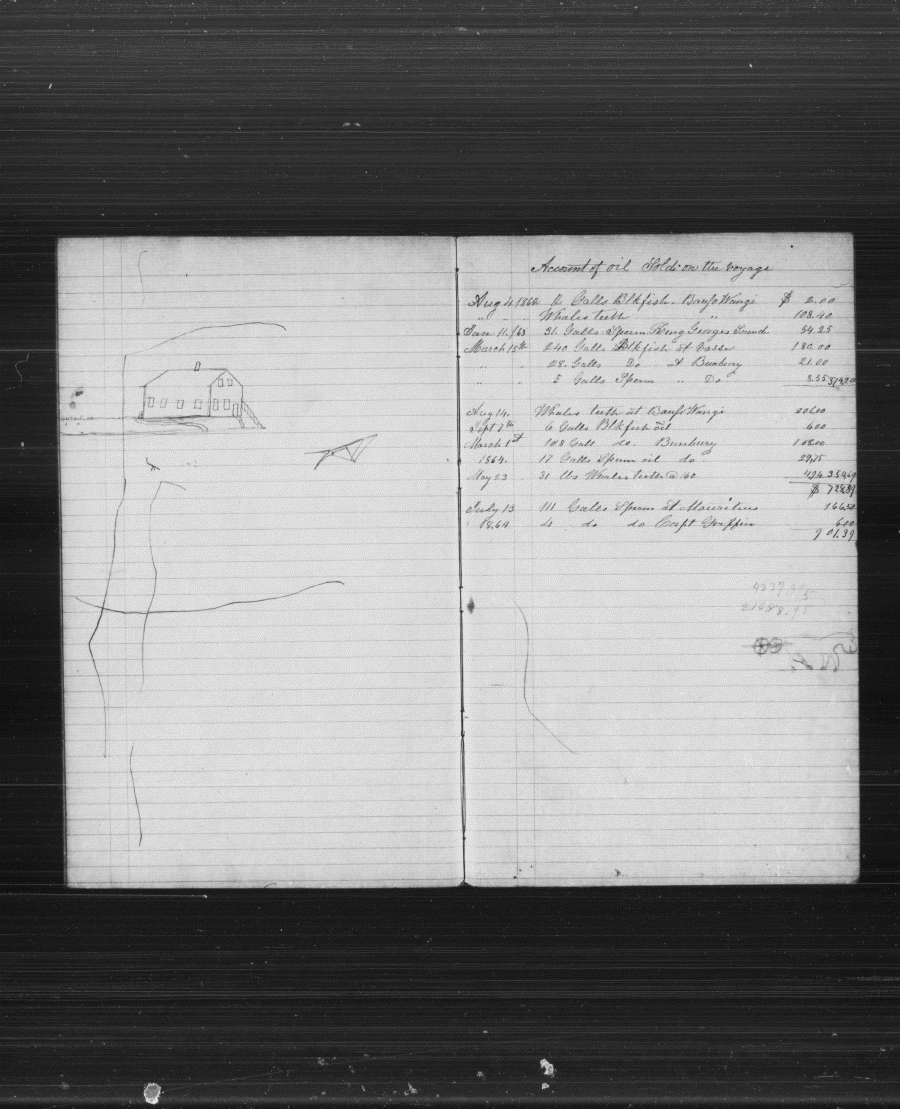 Account of oil Sold on the Voyage
Aug 4 1862 2 Galls Blkfish Banjo Wangi $ 2.00
" " " Whales teeth " " 108.40
Jan 11./63 31. Galls Sperm King Georges Sound. 54.25
March 15th 240 Galls Blkfish at Vasse 180.00
" " 28. Galls Do at Bunbury 21.00
" " 5 Galls Sperm " Do
Aug 14. Whales teeth at Banjo Wangi
Sept 7th 6 Galls Blkfish oil 6.00
March 1st 108 Galls do. Bunbury 108.00
1864. 17 Galls Sperm oil do. 29.75
May 23 31 lbs Whales teeth @
July 13 111 Galls Sperm at Mauritius 166.50
1864 4 do do Capt Griffin 6.00
901.39